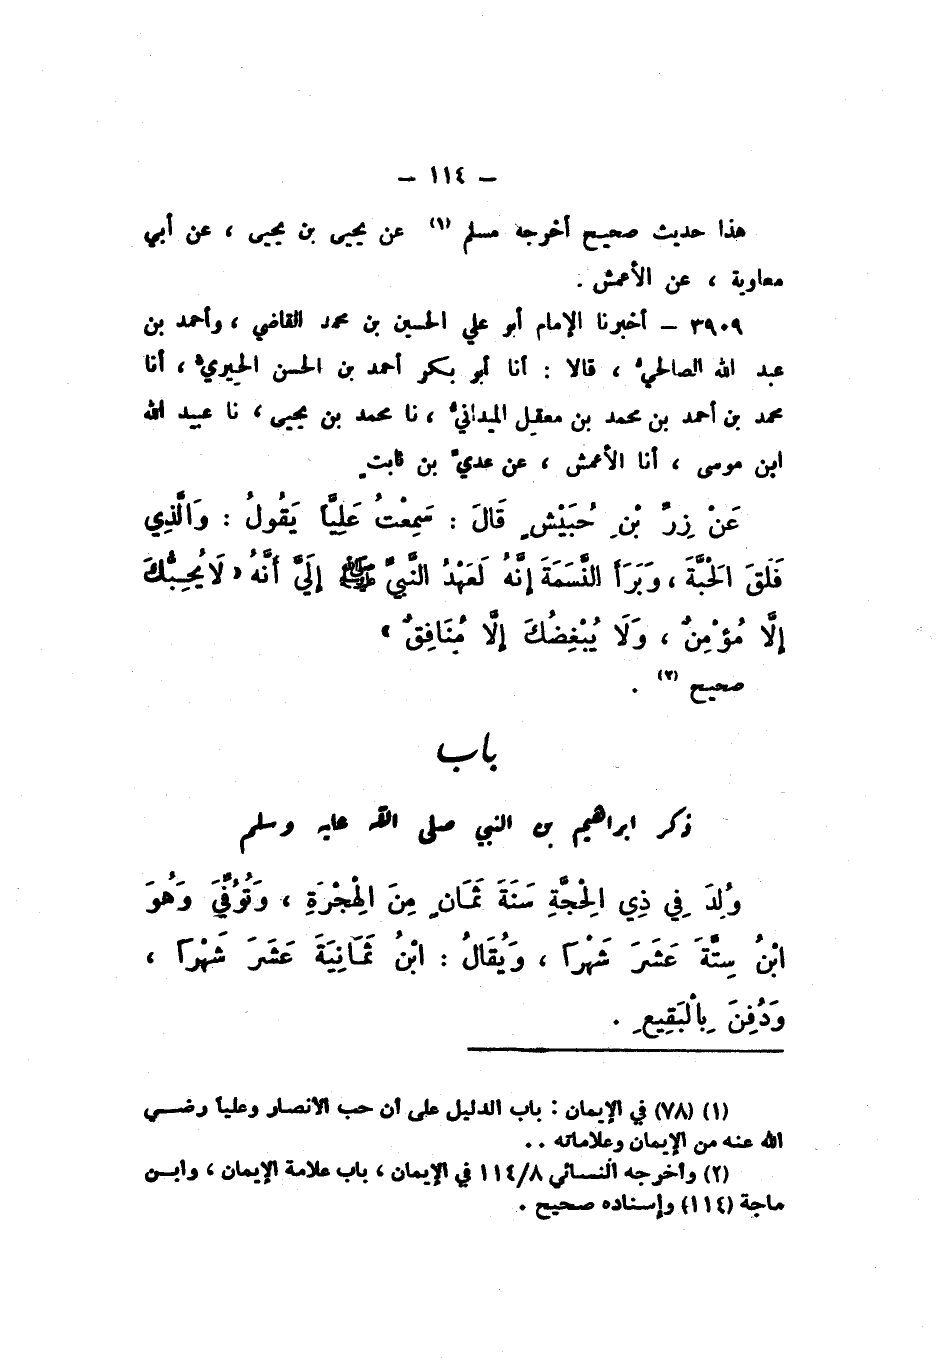 – ١١٤ –
هذا حديث صحيح أخرجه مسلم (١) عن يحيى بن يحيى ، عن أبي
معاوية ، عن الأعمش .
٣٩٠٩ – أخبرنا الإمام أبو علي الحسين بن محمد القاضي ، وأحمد بن
عبد الله الصالحيُّ ، قالا : أنا أبو بكر أحمد بن الحسن الحيريُّ ، أنا
محمد بن أحمد بن محمد بن معقل الميدانيُّ ، نا محمد بن يحيى ، نا عبيد الله
ابن موسى ، أنا الأعمش ، عن عديِّ بن ثابتٍ
عَنْ زِرِّ بْنِ حُبَيْشٍ قَالَ : سَمِعْتُ عَلِيَّاً يَقُولُ : وَالَّذِي
فَلَقَ الحَبَّةَ ، وَبَرَأَ النَّسَمَةَ إِنَّهُ لَعَهْدُ النَّبيِّ ﷺ إِلَيَّ أَنَّهُ « لَا يُحِبُّكَ
إِلَّا مُؤْمِنٌ ، وَلَا يُبْغِضُكَ إِلَّا مُنَافِقٌ »
صحيح (٢) .
باب
ذكر ابراهيم بن النبي صلى الله عليه وسلم
وُلِدَ فِي ذِي الحِجَّةِ سَنَةَ ثَمَانٍ مِنَ الهِجْرَةِ ، وَتُوُفِّيَ وَهُوَ
ابْنُ سِتَّةَ عَشَرَ شَهْرًا ، وَيُقَالُ : ابْنُ ثَمَانِيَةَ عَشَرَ شَهْرًا ،
وَدُفِنَ بِالْبَقِيعِ .
(١) (٧٨) في الإيمان : باب الدليل على أن حب الأنصار وعلياً رضي
الله عنه من الإيمان وعلاماته . .
(٢) وأخرجه النسائي ١١٤/٨ في الإيمان ، باب علامة الإيمان ، وابن
ماجة (١١٤) وإسناده صحيح .